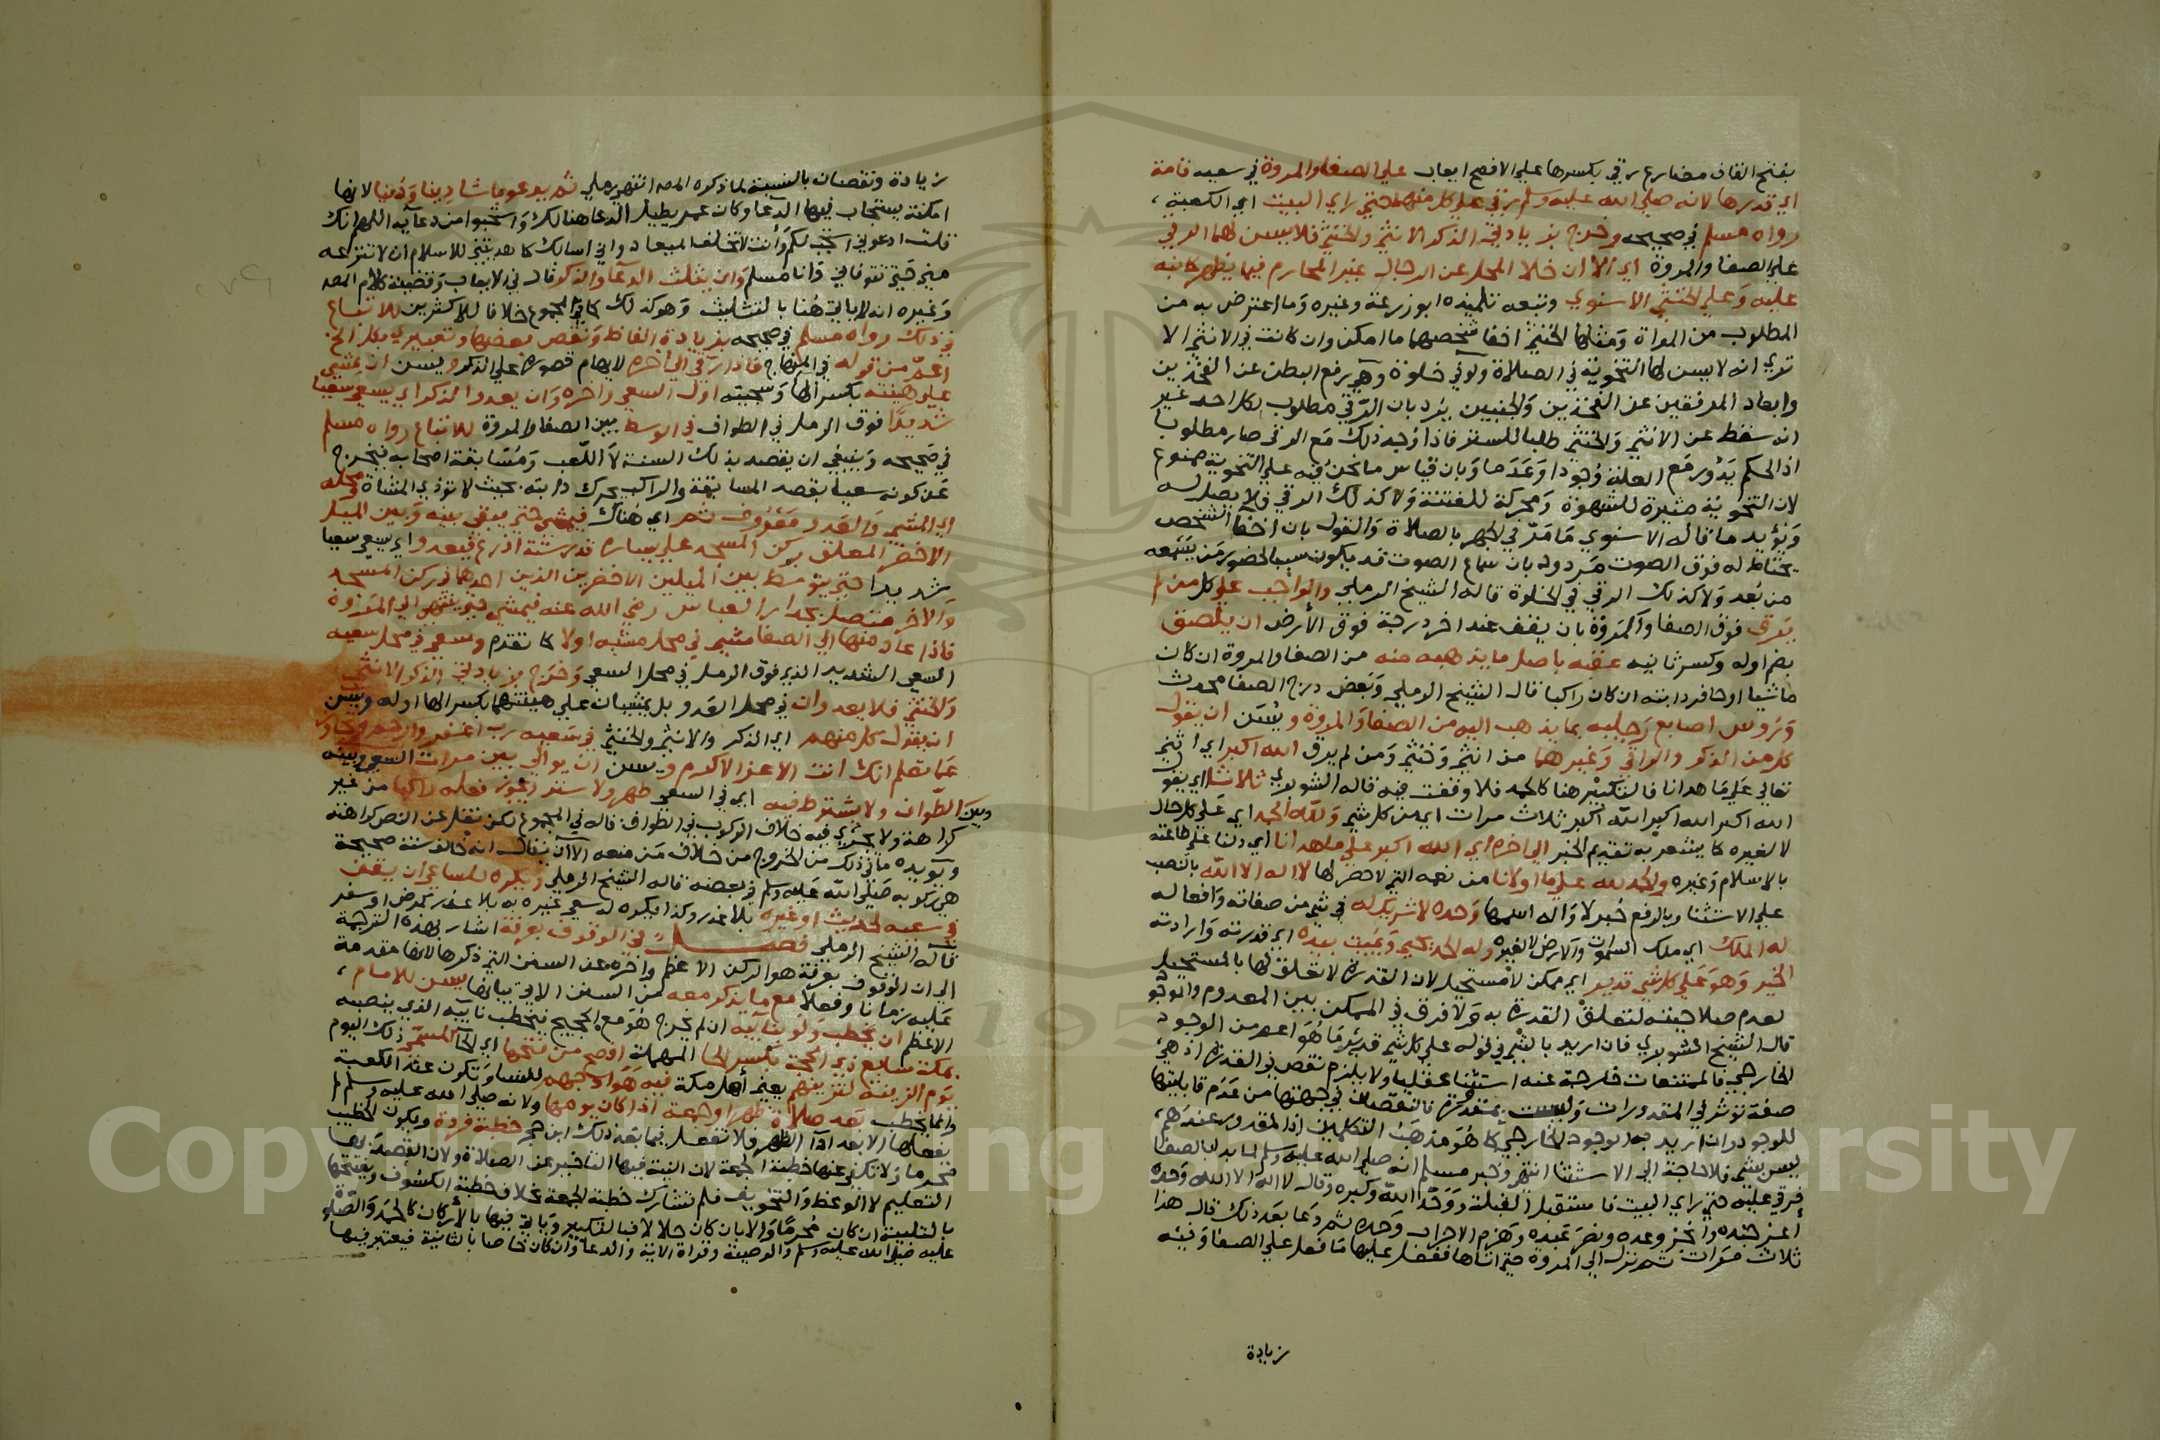 بفتح القاف مضارع رقي بكسرها علي الافصح ايعاب علي الصفا والمروة في سعيه قامة
اي قدرها لانه صلي الله عليه وسلم رقي علي كل منهما حتي راي البيت اي الكعبة،
رواه مسلم في صحيحه وخرج بزيادتي الذكر الانثي والخنثي فلا يسن لهما الرقي
علي الصفا والمروة اي الا ان خلا المحل عن الرجال غير المحارم فيما يظهر كما نبه
عليه وعلي الخنثي الاسنوي وتبعه تلميذه ابوزرعة وغيره وما اعترض به من
المطلوب من المراة ومثلها الخنثي اخفا شخصهما ما امكن وان كانت في
تري انه لا يسن لها التخوية في الصلاة ولو في خلوة وهي رفع البطن عن الفخذين
وابعاد المرفقين عن الفخذين والجنبين يرد بان الرقي مطلوب لكل احد غير
انه سقط عن الانثي والخنثي طلبا للستر فاذا وجد ذلك مع الرقي صار مطلوبا
اذ الحكم يدور مع العلة وجودا وعدما وبان قياس ما نحن فيه علي التخوية ممنوع
لان التخوية مثيرة للشهوة ومحركة للفتنة ولا كذلك الرقي
ويؤيد ما قاله الاسنوي ما مر في الجهر بالصلاة والقول بان اخفا الشخص
يحتاط له فوق الصوت مردود بان سماع الصوت قد يكون سببا لحضور من يسمعه
من بعد ولا كذلك الرقي في الخلوة قاله الشيخ الرملي والواجب علي كل من لم
يرق فوق الصفا والمروة بان يقف عند اخر درجة فوق الأرض ان يلصق
بضم اوله وكسر ثانيه عقبه باصل ما يذهب منه من الصفا والمروة ان كان
ماشيا او حافر دابته ان كان راكبا قال الشيخ الرملي وبعض درج الصفا محدث
وروس اصابع رجليه بما يذهب اليه من الصفا والمروة ويسن ان يقول
كل من الذكر والراقي وغيرهما من انثي وخنثي ومن لم يرق الله اكبر اي
تعالي علي ما هدانا فالتكبير هنا كالحمد فلا وقفت فيه قاله الشوبري ثلاثا اي يقول
الله اكبر الله اكبر الله اكبر ثلاث مرات اي من كل شي ولله الحمد اي علي كل حال
لا لغيره كما يشعر به تقديم الخبر الي اخره اي الله اكبر علي ما هدانا اي دلنا علي طاعته
بالاسلام وغيره والحمد لله علي ما اولانا من نعمه التي لا حصر لها لا اله الا الله بالنصب
علي الاستثنا وبالرفع خبر لا واله اسمها وحده لا شريك له في شي من صفاته وافعاله
له الملك اي ملك السموات والارض لا لغيره وله الحمد يحيي ويميت بيده اي قدرته وارادته
الخير وهو علي كل شي قدير اي ممكن لا مستحيل لان القدرة لا تعلق لها بالمستحيل
لعدم صلاحيته لتعلق القدرة به ولا فرق في الممكن بين المعدوم والموجود
قال الشيخ الشوبري فان اريد بالشي في قوله علي كل شي قدير ما هو اعم من الوجود
الخارجي فالممتنعات خارجة عنه استثنا عقليا ولا يلزم نقص في القدرة اذ هي
صفة تؤثر في المقدورات وليست بمتقدرة فالنقصان في جهتها من عدم قابليتها
للوجود وان اريد به الوجود الخارجي كما هو مذهب المتكلمين اذ المقدور عندهم
ليس بشي فلا حاجة الي الاستثنا انتهي وخبر مسلم انه صلي الله عليه وسلم لما بدا بالصفا
فرقي عليه حتي راي البيت فاستقبل القبلة ووحد الله وكبره وقال لا اله الا الله وحده
أنجز وعده ونصر عبده وهزم الاحزاب وحده ثم دعا بعد ذلك قال هذا
ثلاث مرات ثم نزل الي المروة حتي اتاها ففعل عليها ما فعل علي الصفا وفيه
زيادة
زيادة ونقصان بالنسبة لما ذكره المص انتهي رملي ثم يدعو بما شا دينا ودنيا لانها
امكنة يستجاب فيها الدعا وكان عمر يطيل الدعا هنالك واستحبوا من دعائه اللهم انك
قلت ادعوني استجب لكم وأنت لا تخلف الميعاد واني اسالك كما هديتني للاسلام ان لا تنزعه
مني حتي تتوفاني وانا مسلم وان يثلث الدعا والذكر قال في الايعاب وقضية كلام المص
وغيره انه لا ياتي هنا بالتثليث وهو كذلك كما في المجموع خلافا للاكثرين للاتباع
في ذلك رواه مسلم في صحيحه بزيادة الفاظ ونقص بعضها وتعبيري بكل الخ
اعم من قوله في المنهاج فاذا رقي الي اخره لايهام قصوره علي الذكر ويسن ان يمشي
علي هينته بكسر الها وسجيته اول السعي واخره وان يعدو الذكر اي يسعي سعيا
شديدا فوق الرمل في الطواف في الوسط بين الصفا والمروة للاتباع رواه مسلم
في صحيحه وينبغي ان يقصد بذلك السنة لا اللعب ومسابقة اصحابه فيخرج
عن كونه سعيا بقصد المسابقة والراكب يحرك دابته بحيث لا توذي المشاة ومحله
اي المشي والعدو معروف ثم اي هناك فيمشي حتي يبقي بينه وبين الميل
الاخضر المعلق بركن المسجد علي يساره قدر ستة اذرع فيعدو اي يسعي سعيا
شديدا حتي يتوسط بين الميلين الاخضرين الذين احدهما في ركن المسجد
والاخر متصل بجدار العباس رضي الله عنه فيمشي حتي ينتهي الي المروة
فاذا عاد منها الي الصفا مشي في محل مشيه اولا كما تقدم وسعي في محل سعيه
السعي الشديد الذي فوق الرمل في محل السعي وخرج بزيادتي الذكر الانثي
والخنثي فلا يعدوان في محل العدو بل يمشيان علي هينتهما بكسر الها اوله ويسن
ان يقول كل منهم اي الذكر والانثي والخنثي في سعيه رب اغفر وارحم وتجاوز
عما تعلم انك انت الاعز الاكرم ويسن ان يوالي بين مرات السعي وبينه
وبين الطواف ولا يشترط فيه اي في السعي طهر ولا ستر ويجوز فعله راكبا من غير
كراهة ولا فيه خلاف الركوب في الطواف قاله في المجموع لكن نقل عن النص كراهته
ويؤيده ما في ذلك من الخروج من خلاف من منعه الا ان يقال انه خالف سنة صحيحة
هي ركوبه صلي الله عليه وسلم في بعضه قاله الشيخ الرملي ويكره للساعي ان يقف
في سعيه لحديث او غيره بلا عذر وكذا يكره له سعي غيره به بلا عذر كمرض او سفر
قاله الشيخ الرملي فصل في الوقوف بعرفة اشار بهذه الترجمة
الي ان الوقوف بعرفة هو الركن الاعظم واخره عن السنن التي ذكرها لانها مقدمة
عليه زمانا وفعلا مع ما يذكر معه من السنن الاتي بيانها يسن للامام،
الاعظم ان يخطب ولو بنائبه ان لم يخرج هو مع الحجيج فيخطب نائبه الذي ينصبه
بمكة سابع ذي الحجة بكسر الحا المهملة افصح من فتحها اي الحا المسمي ذلك اليوم
يوم الزينة لتزيينهم يعني أهل مكة فيه هوادجهم للنسا وتكون عند الكعبة
وانما يخطب بعد صلاة ظهر او جمعة اذا كان يومها ولانه صلي الله عليه وسلم لم
يفعلها الا بعد الظهر فلا تفعل فيما بعد ذلك ابن حجر خطبة فردة ويكون الخطيب
محرما ولا تكفي عنها خطبة الجمعة لان السنة فيها التاخير عن الصلاة ولان القصد بها
التعليم لا الوعظ والتخويف فلم تشارك خطبة الجمعة بخلاف خطبة الكسوف ويفتتحها
بالتلبية ان كان محرما والا بان كان حلالا فبالتكبير وياتي فيها بالأركان كالحمد والصلاة
عليه صلي الله عليه وسلم والوصية وقراة الاية والدعا وان كان خاصا بالثانية فيعتبر فيها